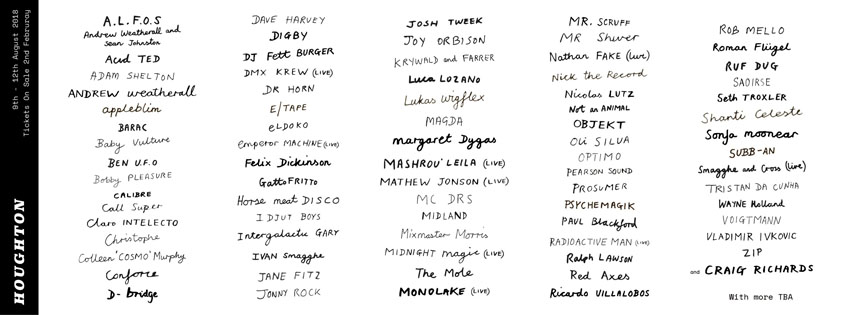 9th - 12th August 2018
Tickets On Sale 2nd Februray
HOUGHTON
A.L.F.O.S
Andrew Weatherall and
Sean Johnston
Acid TED
ADAM SHELTON
ANDREW weatherall
appleblim
BARAC
Baby Vulture
BEN U.F.O
Bobby PLEASURE
CALIBRE
Call Super
Claro INTELECTO
Christophe
Colleen 'COSMO' Murphy
Conforce
D- bridge
DAVE HARVEY
DIGBY
DJ Fett BURGER
DMX KREW (LIVE)
DR HORN
E/TAPE
eLDOKO
emperor MACHINE (LIVE)
Felix Dickinson
Gatto FRITTO
Horse meat DISCO
I DJUT BOYS
Intergalactic GARY
IVAN Smagghe
JANE FITZ
JONNY ROCK
JOSH TWEEK
JOY ORBISON
KRYWALD and FARRER
Luca LOZANO
Lukas Wigflex
MAGDA
margaret Dygas
MASHROU' LEILA (LIVE)
MATHEW JONSON (LIVE)
MC DRS
MIDLAND
Mixmaster Morris
MIDNIGHT magic (LIVE)
The Mole
MONOLAKE (LIVE)
MR. SCRUFF
MR Shiver
Nathan FAKE (Live)
Nick the Record
Nicolas LUTZ
Not an ANIMAL
OBJEKT
Oli SILVA
OPTIMO
PEARSON SOUND
PROSUMER
PSYCHEMAGIK
PAUL Blackford
RADIOACTIVE MAN (LIVE)
Ralph LAWSON
Red Axes
Ricardo VILLALOBOS
ROB MELLO
Roman Flügel
RUF DUG
SAOIRSE
Seth TROXLER
Shanti Celeste
Sonja moonear
SUBB-AN
Smagghe and Cross (Live)
TRISTAN DA CUNHA
WAYNE Holland
VOIGTMANN
VLADIMIR IVKOVIC
ZIP
and CRAIG RICHARDS
With more TBA